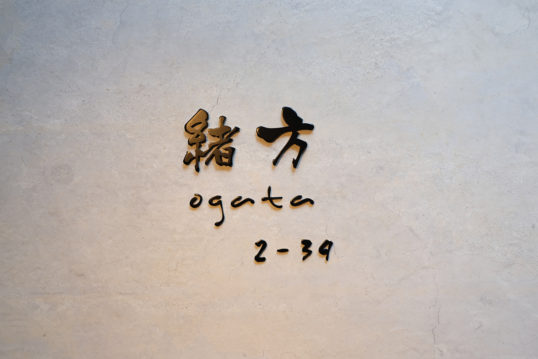 緒方
ogata
2-39